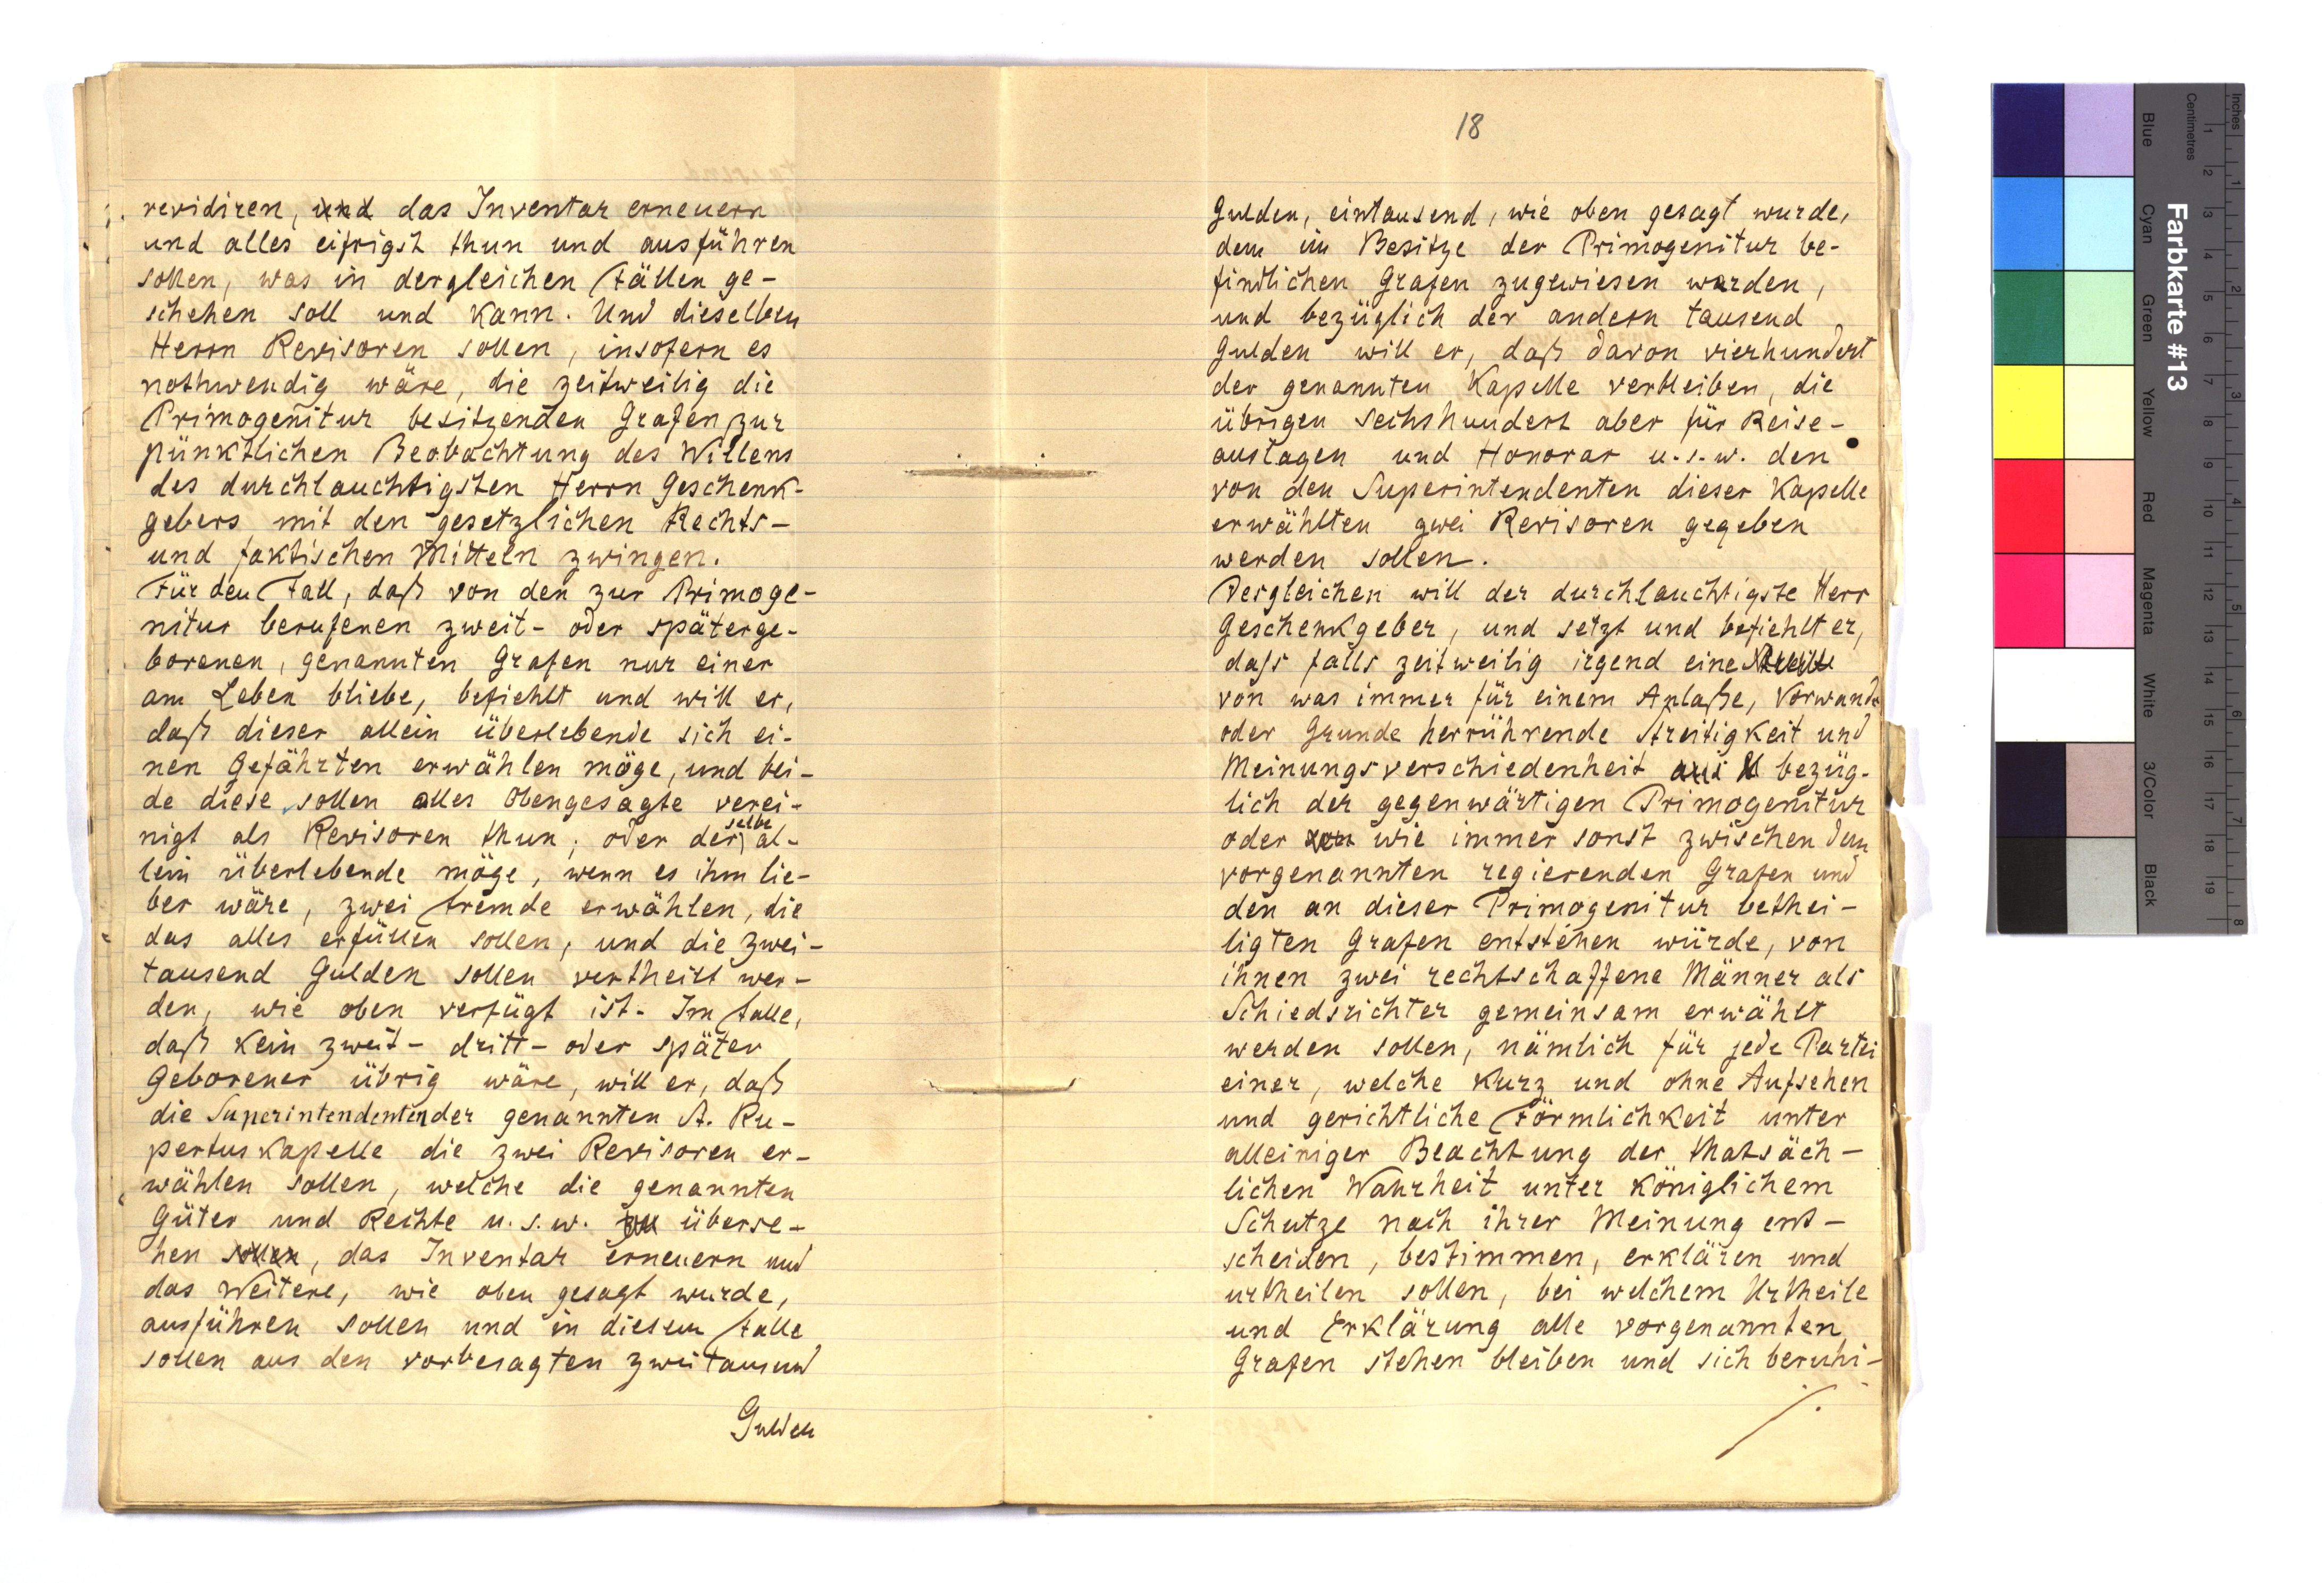 revidiren, und das Inventar erneuern
und alles eifrigst thun und ausführen
sollen, was in dergleichen Fällen ge-
schehen soll und kann. Und dieselben
Herrn Revisoren sollen, insofern es
nothwendig wäre, die zeitweilig die
Primogenitur besitzenden Grafen zur
pünktlichen Beobachtung des Willens
des durchlauchtigsten Herrn Geschenk-
gebers mit den gesetzlichen Rechts-
und faktischen Mitteln zwingen.
Für den Fall, daß von den zur Primoge-
nitur berufenen zweit- oder späterge-
borenen, genannten Grafen nur einer
am Leben bliebe, befiehlt und will er,
daß dieser allein überlebende sich ei-
nen Gefährten erwählen möge, und bei-
de diese sollen alles Obengesagte verei-
nigt als Revisoren thun, oder derselbe al-
lein überlebende möge, wenn es ihm lie-
ber wäre, zwei Fremde erwählen, die
das alles erfüllen sollen, und die zwei-
tausend Gulden sollen vertheilt wer-
den, wie oben verfügt ist. Im Falle,
daß kein zweit- dritt- oder später
Geborener übrig wäre, will er, daß
die Superintendenten der genannten St. Ru-
pertuskapelle die zwei Revisoren er-
wählen sollen, welche die genannten
Güter und Rechte u.s.w. zu überse-
hen sollen, das Inventar erneuern und
das Weitere, wie oben gesagt wurde,
ausführen sollen und in diesem Falle
sollen aus den vorbesagten zweitausend
Gulden
18
Gulden, eintausend, wie oben gesagt wurde,
dem im Besitze der Primogenitur be-
findlichen Grafen zugewiesen werden,
und bezüglich der andern tausend
Gulden will er, daß davon vierhundert
der genannten Kapelle verbleiben, die
übrigen sechshundert aber für Reise-
auslagen und Honorar u.s.w. den
von den Superintendenten dieser Kapelle
erwählten zwei Revisoren gegeben
werden sollen.
Dergleichen will der durchlauchtigste Herr
Geschenkgeber, und setzt und befiehlt er,
dass falls zeitweilig irgend eine
von was immer für einem Anlaße, Vorwande
oder Grunde herrührende Streitigkeit und
Meinungsverschiedenheit bezüg-
lich der gegenwärtigen Primogenitur
oder von wie immer sonst zwischen dem
vorgenannten regierenden Grafen und
den an dieser Primogenitur bethei-
ligten Grafen entstehen würde, von
ihnen zwei rechtschaffene Männer als
Schiedsrichter gemeinsam erwählt
werden sollen, nämlich für jede Partei
einer, welche kurz und ohne Aufsehen
und gerichtliche Förmlichkeit unter
alleiniger Beachtung der thatsäch-
lichen Wahrheit unter königlichem
Schutze nach ihrer Meinung ent-
scheiden, bestimmen, erklären und
urtheilen sollen, bei welchem Urtheile
und Erklärung alle vorgenannten
Grafen stehen bleiben und sich beruhi-
./.
Farbkarte #13
Inches 1 2 3 4 5 6 7 8
Centimetres 1 2 3 4 5 6 7 8 9 10 11 12 13 14 15 16 17 18 19
Blue
Cyan
Green
Yellow
Red
Magenta
White
3/Color
Black